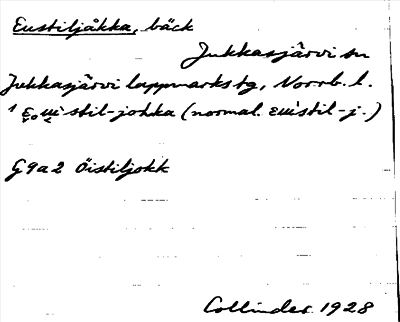 Eustiljåkka, bäck
Jukkasjärvi sn
Jukkasjärvi lappmarks tg, Norrb. l.
stil-johka (normal. euistil-j.)
G9a2 Öistiljokk
Collinder 1928